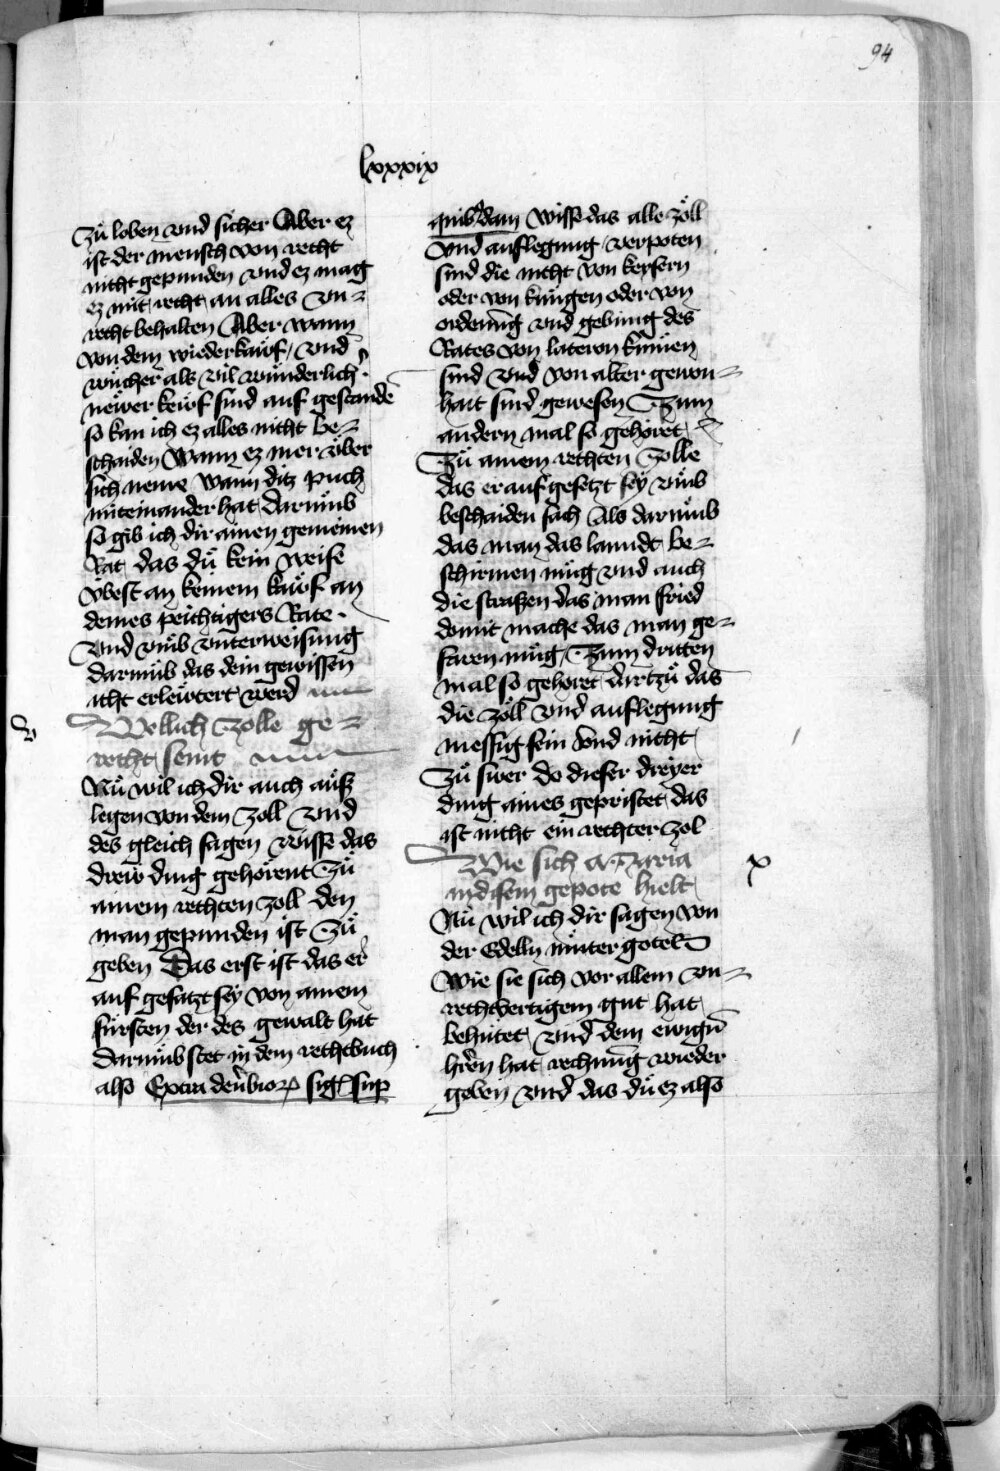 94
lxxxix
Zů loben vnd sicher Aber ez
ist der mensch von recht
nicht gepunden vnd ez mag
ez mit recht an alles vn=
recht behalten Aber wann
von dem wiederkaúf vnd
wůcher als vil wůnderlich
newer keúf sind auf gestandē
so kan ich ez alles nicht be=
schaiden Wann ez mer vber
sich neme wann ditz puch
miteinander hat darumb
so gib ich dir ainen gemeinen
Rat das dů kein weise
vbest an keinem kaúf an
deines peichtigers Rate
Vnd vmb vnterweisung
darumb das dein gewissen
icht erlewtert werd
Wellich zolle ge=
recht seint
Nů wil ich dir auch aúß
legen von dem zoll vnd
des gleich sagen wisse das
drew ding gehorent zů
ainem rechten zoll den
man gepunden ist zů
geben Das erst ist das er
auf gesatzt sey von ainem
fursten der des gewalt hat
darumb stet in dem rechtbuch
also Extra de vbioꝝ sigͥ sup
quibdam wisse das alle zöll
vnd auflegung verpoten
sind die nicht von keysern
oder von kungen oder von
ordenūg vnd gebung des
Rates von lateron kumen
sind vnd von alter gewon=
hait sind gewesen Zum
andern mal so gehoret
Zů ainem rechten zolle
das er auf gesetzt sey vmb
beschaiden sach Als darumb
das man das lanndt be=
schirmen mug vnd auch
die straßen das man frid
domit mache das man ge=
faren mug Zum dritten
mal so gehoret dartzů das
die zöll vnd auflegung
messig sein Vnd nicht
Zů swer do dieser dreyer
ding aines gepristet das
ist nicht ein rechter zol
Wie sich Maria
in disem gepote hielt
Nů wil ich dir sagen von
der Edelln můter gotes
Wie sie sich vor allem vn=
rechtvertigem gut hat
behutet vnd dem ewigē
hrēn hat rechnūg wieder
geben vnd das dů ez also